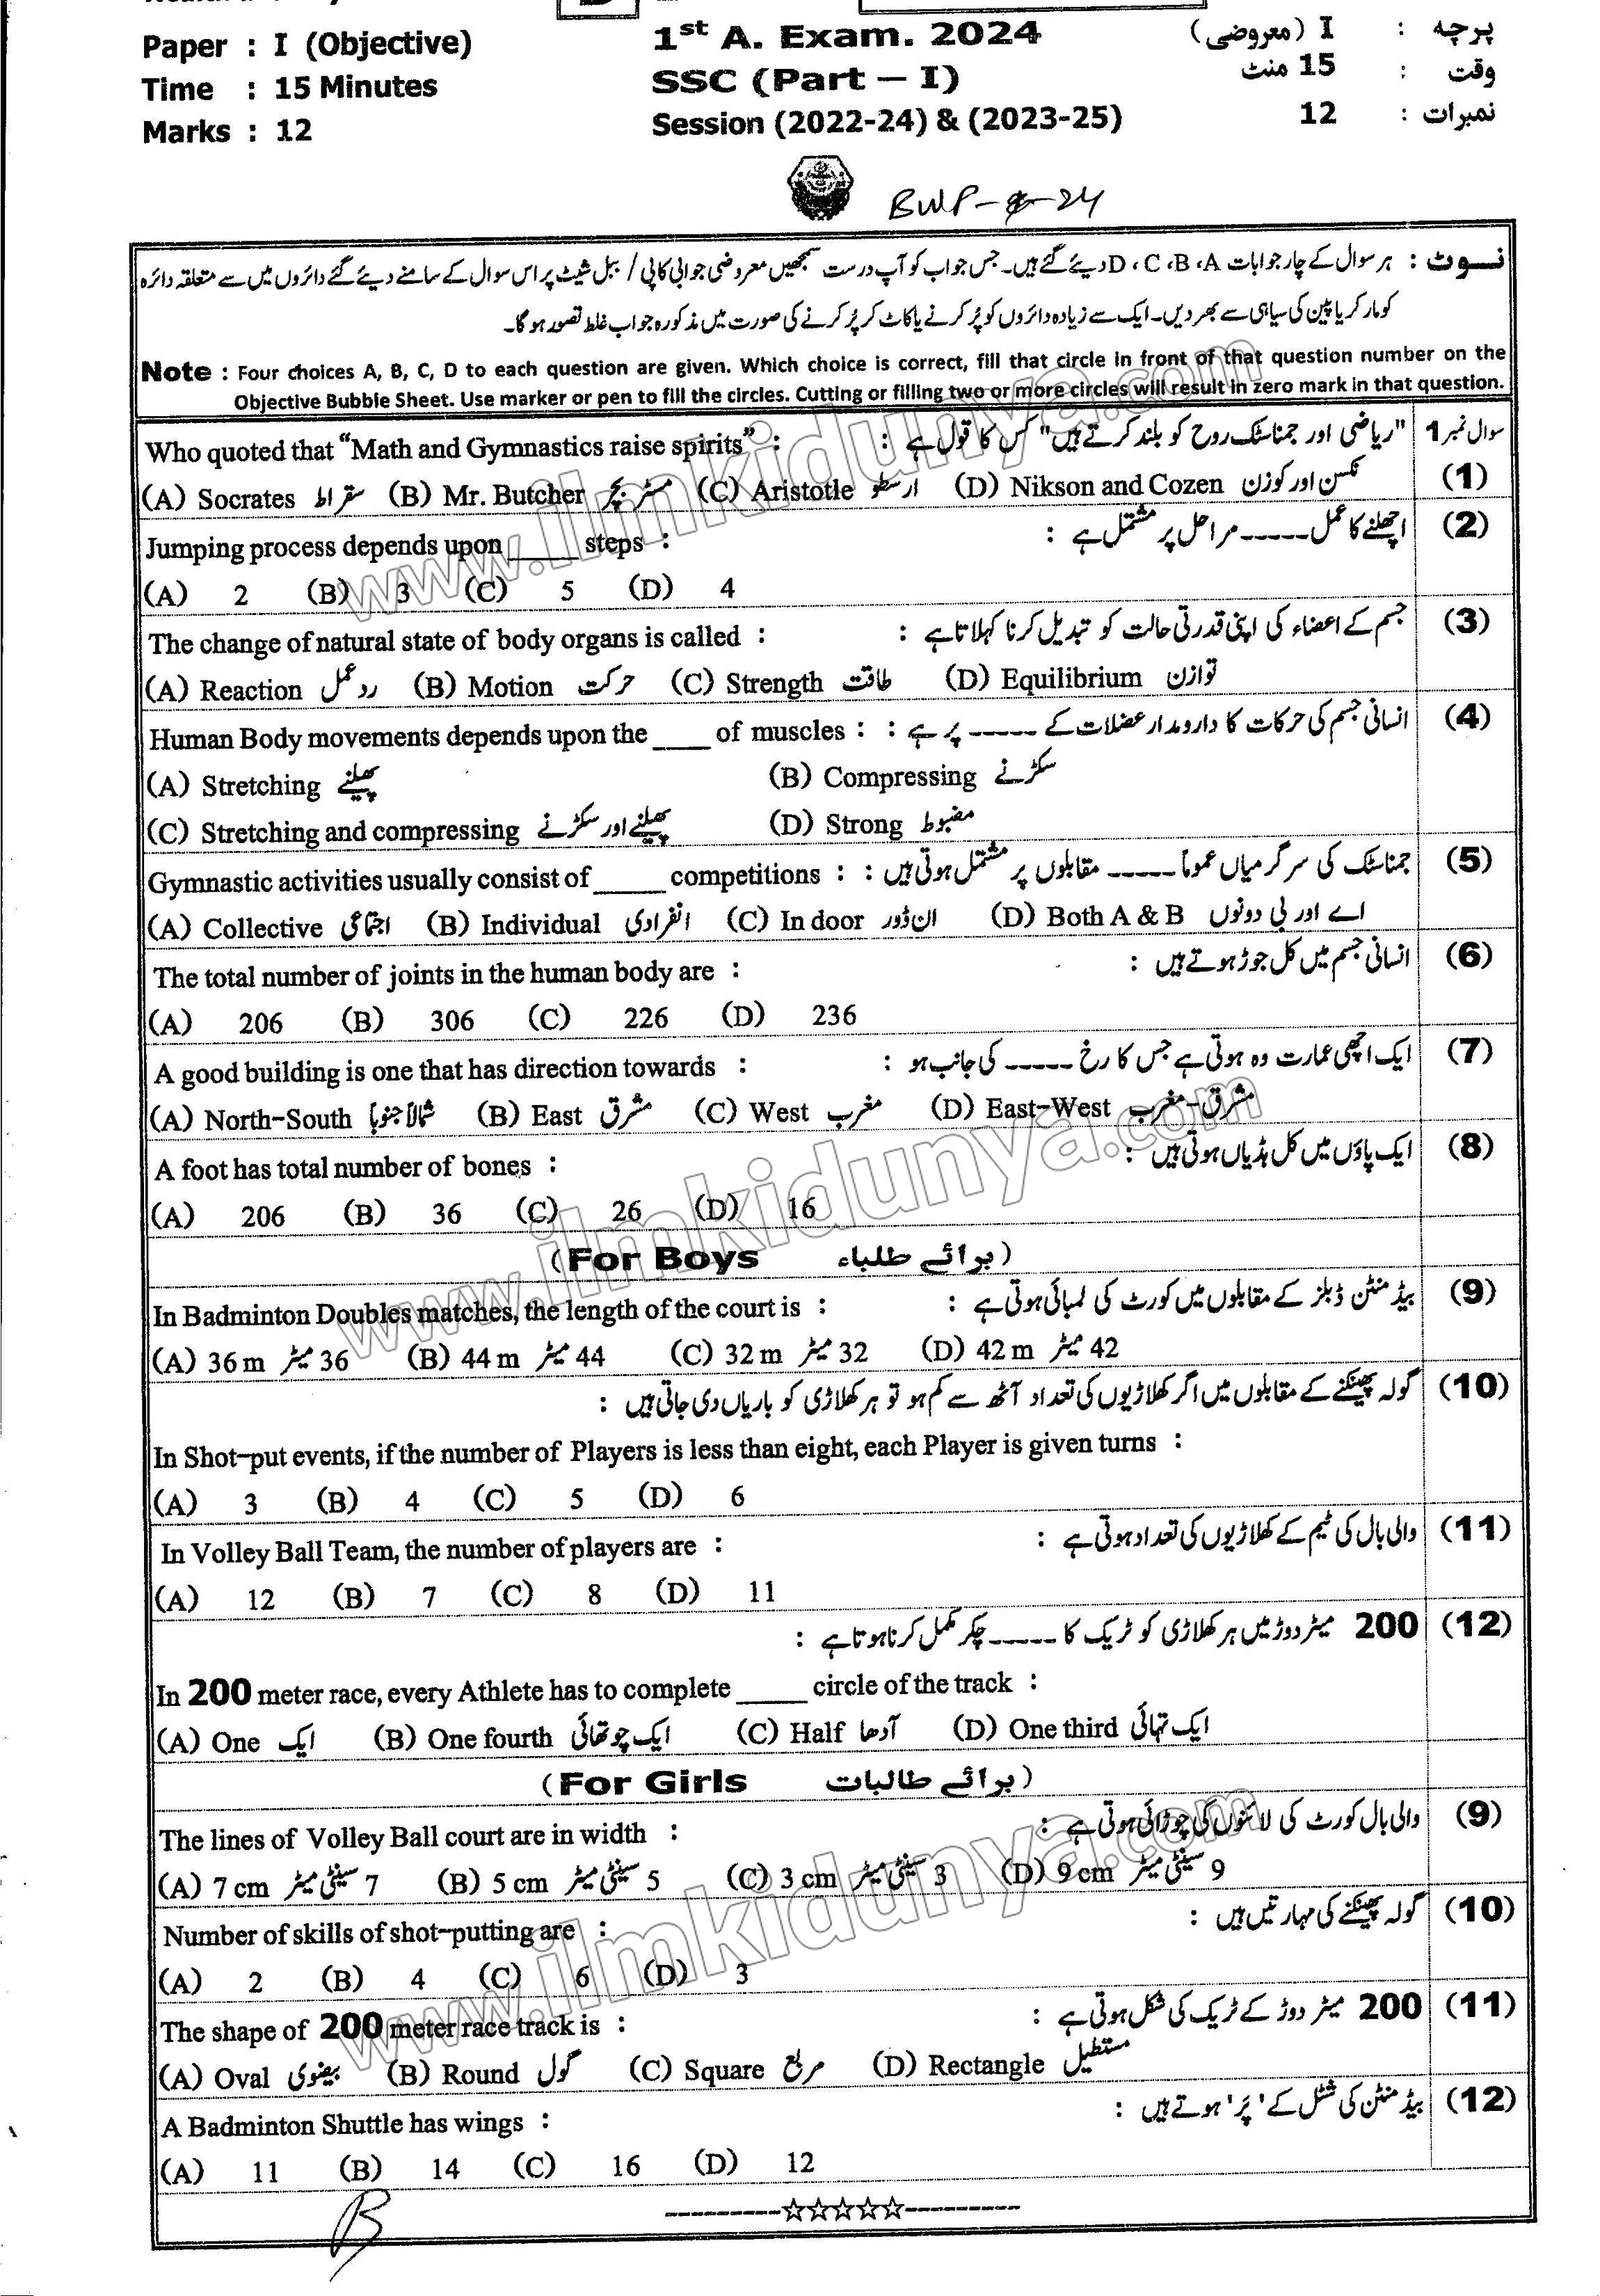 Paper : I (Objective)
1st A. Exam. 2024
پرچہ : I (معروضی)
Time : 15 Minutes
SSC (Part – I)
وقت : 15 منٹ
Marks : 12
Session (2022-24) & (2023-25)
نمبرات : 12
BWP- -24
نوٹ : ہر سوال کے چار جوابات D ، C ،B ،A دیئے گئے ہیں۔ جس جواب کو آپ درست سمجھیں معروضی جوابی کاپی / ببل شیٹ پر اس سوال کے سامنے دیئے گئے دائروں میں سے متعلقہ دائرہ
کو مار کر یا پین کی سیاہی سے بھر دیں۔ ایک سے زیادہ دائروں کو پُر کرنے یا کاٹ کر پُر کرنے کی صورت میں مذکورہ جواب غلط تصور ہو گا۔
Note : Four choices A, B, C, D to each question are given. Which choice is correct, fill that circle in front of that question number on the
Objective Bubble Sheet. Use marker or pen to fill the circles. Cutting or filling two or more circles will result in zero mark in that question.
سوال نمبر 1
Who quoted that “Math and Gymnastics raise spirits” : "ریاضی اور جمناسٹک روح کو بلند کرتے ہیں" کس کا قول ہے :
(A) Socrates سقراط (B) Mr. Butcher مسٹر بچر (C) Aristotle ارسطو (D) Nikson and Cozen نکسن اور کوزن (1)
اچھلنے کا عمل ----- مراحل پر مشتمل ہے : (2)
Jumping process depends upon _____ steps :
(A) 2 (B) 3 (C) 5 (D) 4
The change of natural state of body organs is called : جسم کے اعضاء کی اپنی قدرتی حالت کو تبدیل کرنا کہلاتا ہے : (3)
(A) Reaction ردعمل (B) Motion حرکت (C) Strength طاقت (D) Equilibrium توازن
Human Body movements depends upon the ____ of muscles : انسانی جسم کی حرکات کا دارومدار عضلات کے ----- پر ہے : (4)
(A) Stretching پھیلنے (B) Compressing سکڑنے
(C) Stretching and compressing پھیلنے اور سکڑنے (D) Strong مضبوط
Gymnastic activities usually consist of _____ competitions : جمناسٹک کی سرگرمیاں عموماً ----- مقابلوں پر مشتمل ہوتی ہیں : (5)
(A) Collective اجتماعی (B) Individual انفرادی (C) In door ان ڈور (D) Both A & B اے اور بی دونوں
The total number of joints in the human body are : انسانی جسم میں کل جوڑ ہوتے ہیں : (6)
(A) 206 (B) 306 (C) 226 (D) 236
A good building is one that has direction towards : ایک اچھی عمارت وہ ہوتی ہے جس کا رخ ----- کی جانب ہو : (7)
(A) North-South شمالاً جنوباً (B) East مشرق (C) West مغرب (D) East-West مشرق-مغرب
A foot has total number of bones : ایک پاؤں میں کل ہڈیاں ہوتی ہیں : (8)
(A) 206 (B) 36 (C) 26 (D) 16
(For Boys برائے طلباء)
In Badminton Doubles matches, the length of the court is : بیڈ منٹن ڈبلز کے مقابلوں میں کورٹ کی لمبائی ہوتی ہے : (9)
(A) 36 m 36 میٹر (B) 44 m 44 میٹر (C) 32 m 32 میٹر (D) 42 m 42 میٹر
گولہ پھینکنے کے مقابلوں میں اگر کھلاڑیوں کی تعداد آٹھ سے کم ہو تو ہر کھلاڑی کو باریاں دی جاتی ہیں : (10)
In Shot-put events, if the number of Players is less than eight, each Player is given turns :
(A) 3 (B) 4 (C) 5 (D) 6
In Volley Ball Team, the number of players are : والی بال کی ٹیم کے کھلاڑیوں کی تعداد ہوتی ہے : (11)
(A) 12 (B) 7 (C) 8 (D) 11
200 میٹر دوڑ میں ہر کھلاڑی کو ٹریک کا ----- چکر مکمل کرنا ہوتا ہے : (12)
In 200 meter race, every Athlete has to complete _____ circle of the track :
(A) One ایک (B) One fourth ایک چوتھائی (C) Half آدھا (D) One third ایک تہائی
(For Girls برائے طالبات)
The lines of Volley Ball court are in width : والی بال کورٹ کی لائنوں کی چوڑائی ہوتی ہے : (9)
(A) 7 cm 7 سینٹی میٹر (B) 5 cm 5 سینٹی میٹر (C) 3 cm 3 سینٹی میٹر (D) 9 cm 9 سینٹی میٹر
Number of skills of shot-putting are : گولہ پھینکنے کی مہارتیں ہیں : (10)
(A) 2 (B) 4 (C) 6 (D) 3
The shape of 200 meter race track is : 200 میٹر دوڑ کے ٹریک کی شکل ہوتی ہے : (11)
(A) Oval بیضوی (B) Round گول (C) Square مربع (D) Rectangle مستطیل
A Badminton Shuttle has wings : بیڈ منٹن کی شٹل کے 'پَر' ہوتے ہیں : (12)
(A) 11 (B) 14 (C) 16 (D) 12
---------☆☆☆☆☆---------
B
www.ilmkidunya.com
www.ilmkidunya.com
www.ilmkidunya.com